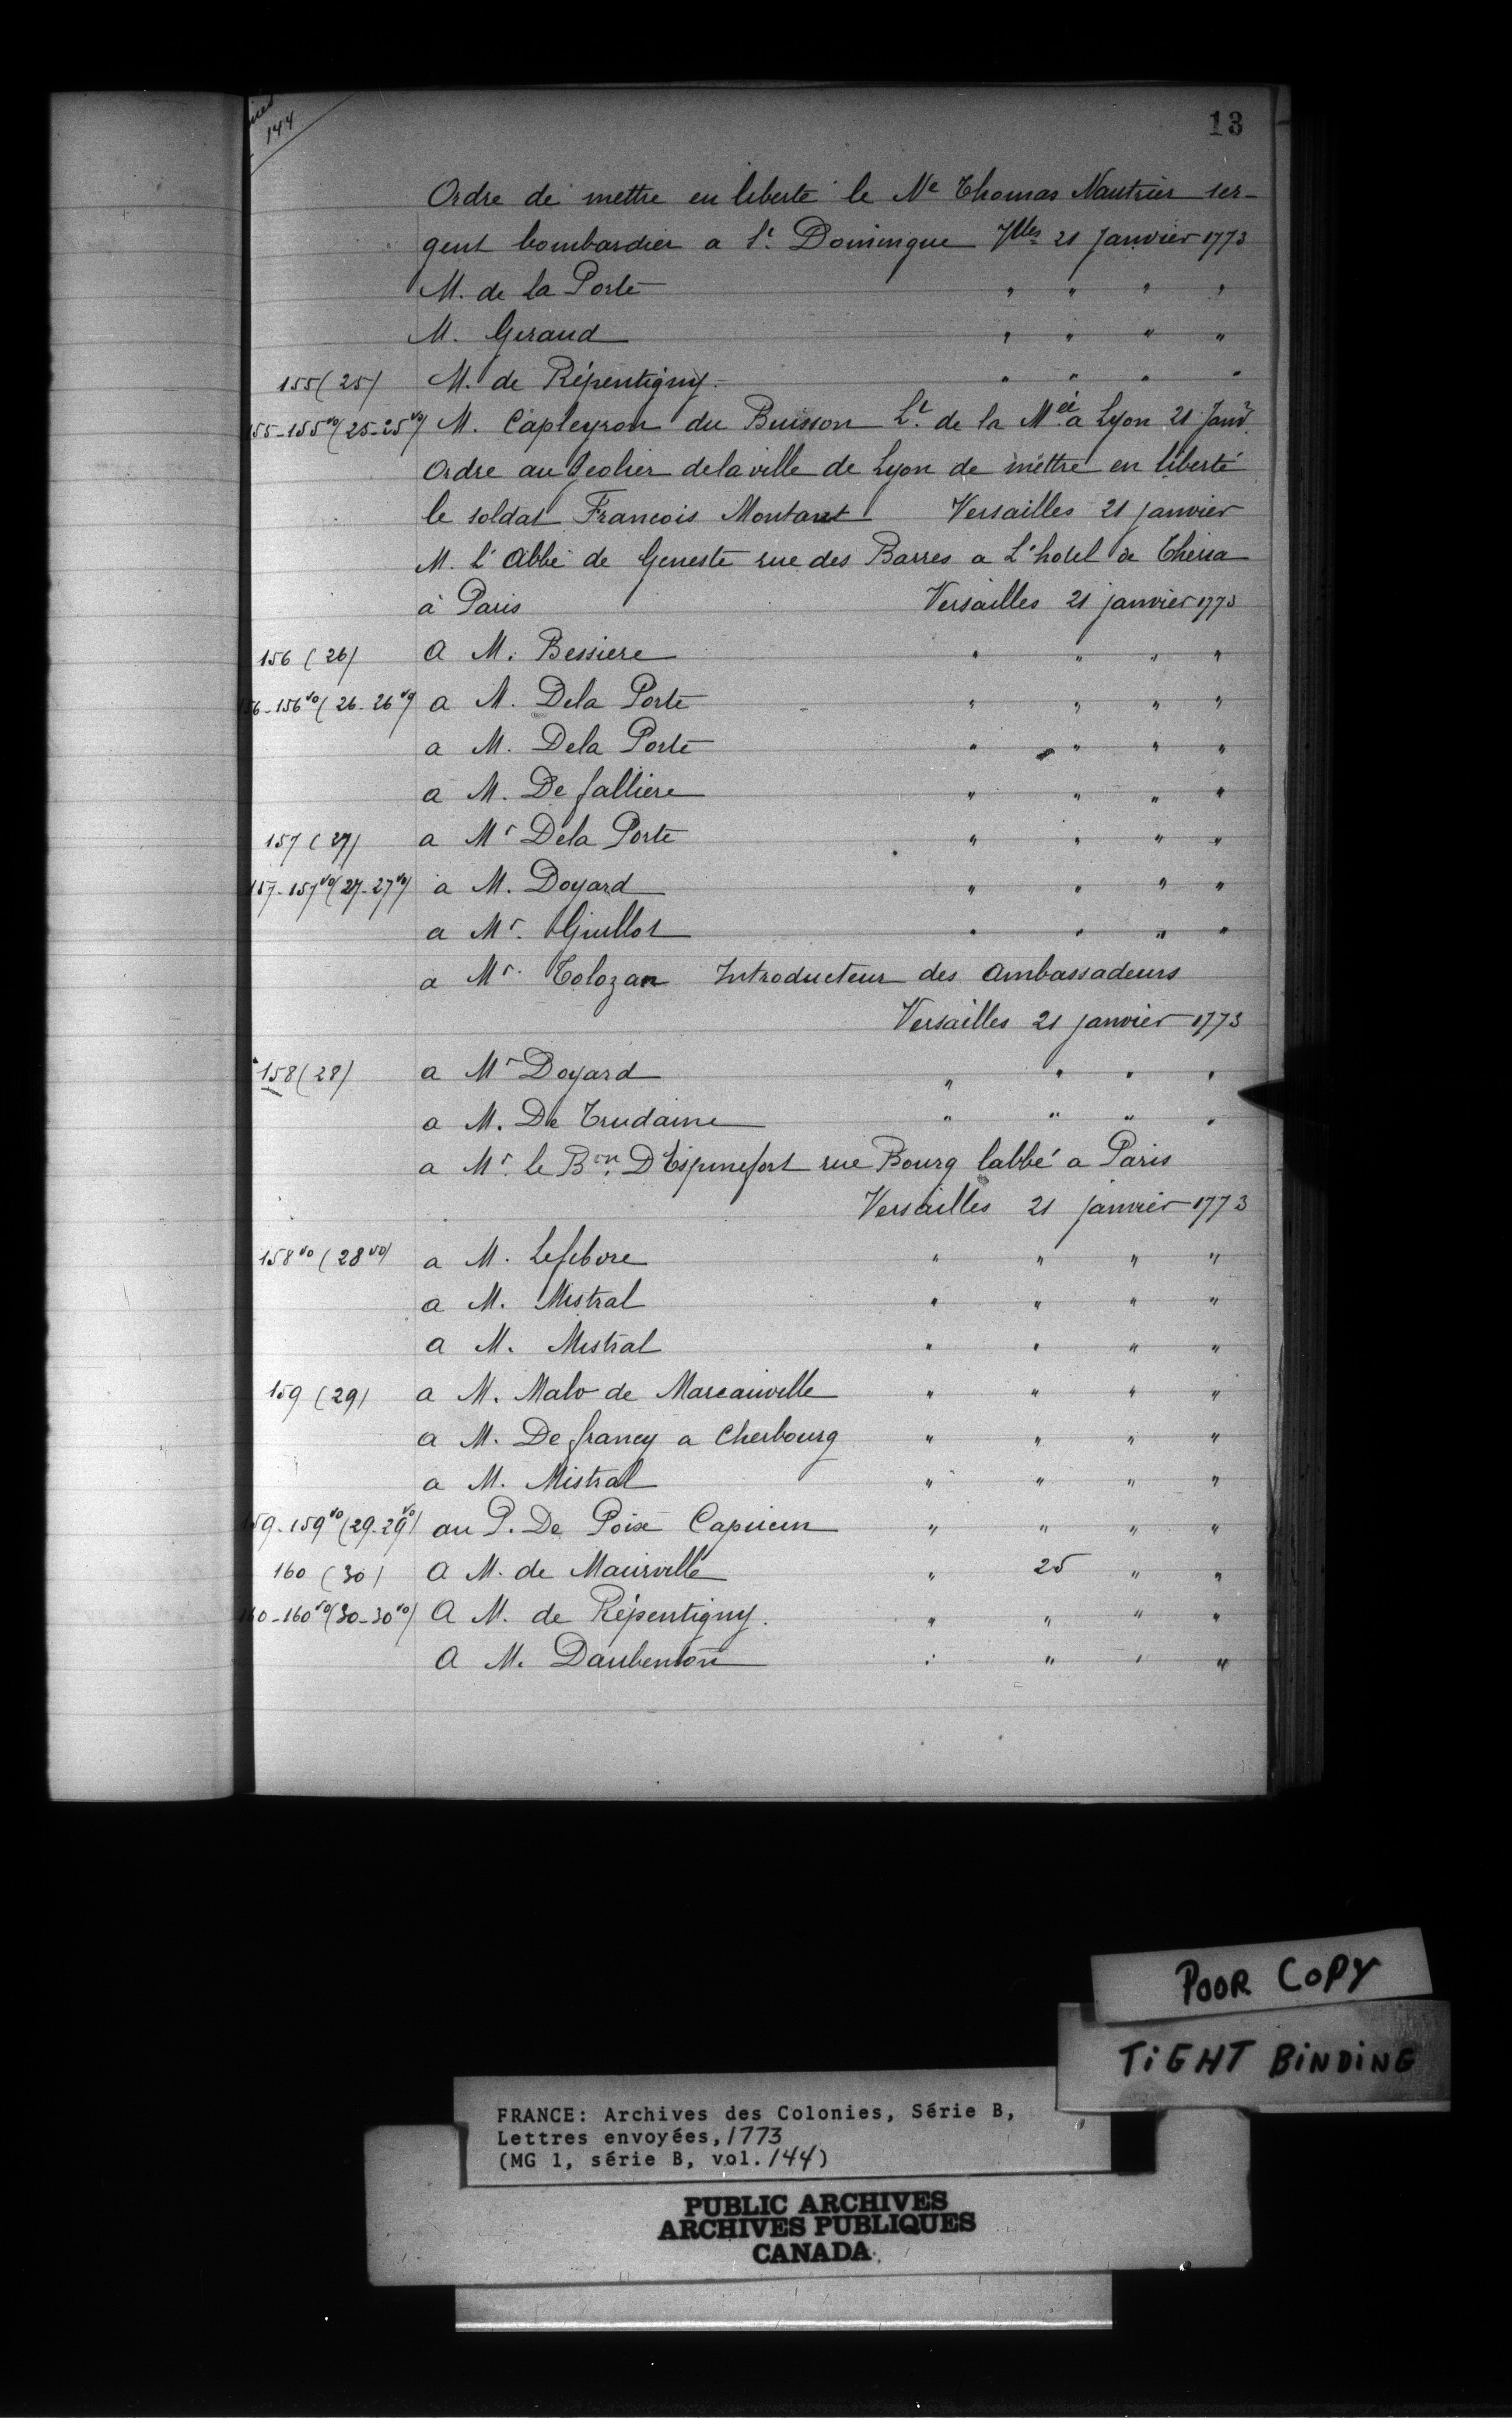 144
13
Ordre de mettre en liberté le Ne Thomas Nautrier ser-
gent bombardier a St. Domingue Vlles 21 Janvier 1773
M. de la Porte " " " "
M. Geraud " " " "
155 (25) M. de Répentigny. " " " "
155-155vo (25-25vo) M. Capleyron du Buisson Lt. de la Mée a Lyon 21 Janvr.
Ordre au Geolier dela ville de Lyon de mettre en liberté
le soldat Francois Montaret Versailles 21 janvier
M. l'Abbé de Geneste rue des Barres a L'hotel de
à Paris Versailles 21 janvier 1773
156 (26) A M. Bessiere " " " "
156-156vo (26-26vo) a M. Dela Porte " " " "
a M. Dela Porte " " " "
a M. De falliere " " " "
157 (27) a Mr Dela Porte " " " "
157-157vo (27-27vo) a M. Doyard " " " "
a Mr. Guillot " " " "
a Mr. Tolozan Introducteur des Ambassadeurs
Versailles 21 janvier 1773
158 (28) a Mr Doyard " " " "
a M. De Trudaine " " " "
a Mr. le Bon. D'Espinefort rue Bourg labbé a Paris
Versailles 21 janvier 1773
158vo (28vo) a M. Lefebvre " " " "
a M. Mistral " " " "
a M. Mistral " " " "
159 (29) a M. Malo de Marcauville " " " "
a M. De francy a Cherbourg " " " "
a M. Mistral " " " "
159-159vo (29-29vo) au P. De Poix Capucin " " " "
160 (30) A M. de Maurville " 25 " "
160-160vo (30-30vo) A M. de Répentigny. " " " "
A M. Daubenton " " " "
POOR COPY
TIGHT BINDING
FRANCE: Archives des Colonies, Série B,
Lettres envoyées, 1773
(MG 1, série B, vol. 144)
PUBLIC ARCHIVES
ARCHIVES PUBLIQUES
CANADA